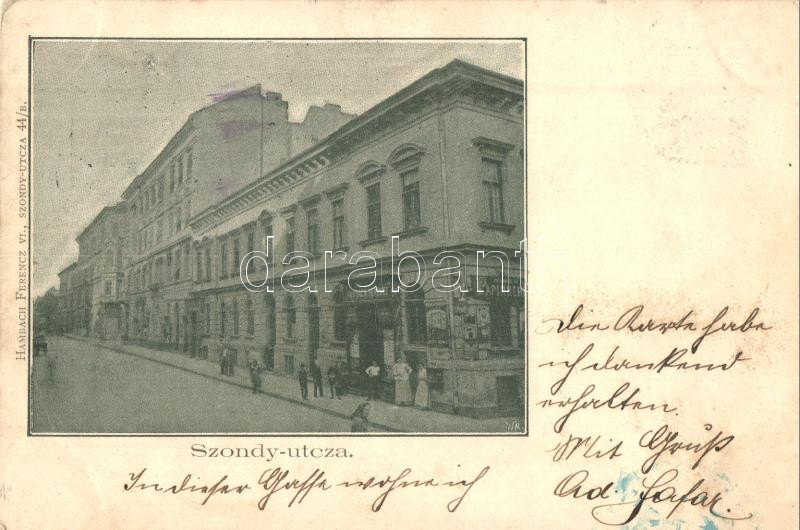 HAMBACH FERENCZ VI., SZONDY-UTCZA 44/B.
darabanth
Szondy-utcza.
In dieser Gasse wohne ich
Die Karte habe
ich dankend
erhalten.
Mit Gruß
Ad. Safar.